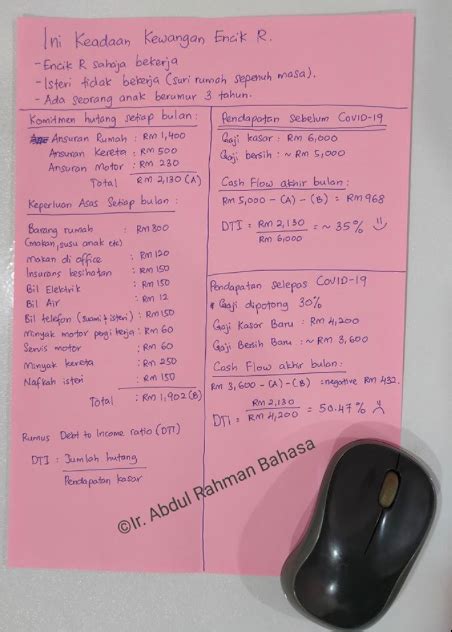 Ini Keadaan Kewangan Encik R.
- Encik R sahaja bekerja
- Isteri tidak bekerja (suri rumah sepenuh masa).
- Ada seorang anak berumur 3 tahun.
Komitmen hutang setiap bulan :
Ansuran Rumah : RM 1,400
Ansuran Kereta : RM 500
Ansuran Motor : RM 230
Total RM 2,130 (A)
Keperluan Asas Setiap bulan :
Barang rumah : RM 800
(makan, susu anak etc)
makan di office : RM 120
Insurans kesihatan : RM 150
Bil Elektrik : RM 150
Bil Air : RM 12
Bil telefon (suami + isteri) : RM 150
Minyak motor pergi kerja : RM 60
Servis motor : RM 60
Minyak kereta : RM 250
Nafkah isteri : RM 150
Total : RM 1,902 (B)
Rumus Debt to Income ratio (DTI)
DTI : Jumlah hutang
Pendapatan kasar
Pendapatan Sebelum COVID-19
Gaji kasar : RM 6,000
Gaji bersih : ~ RM 5,000
Cash Flow akhir bulan :
RM 5,000 - (A) - (B) = RM 968
DTI = RM 2,130 = ~ 35%
RM 6,000
Pendapatan selepas COVID-19
* Gaji dipotong 30%
Gaji Kasar Baru : RM 4,200
Gaji Bersih Baru : ~ RM 3,600
Cash Flow akhir bulan :
RM 3,600 - (A) - (B) : negative RM 432.
DTI = RM 2,130 = 50.47%
RM 4,200
©Ir. Abdul Rahman Bahasa